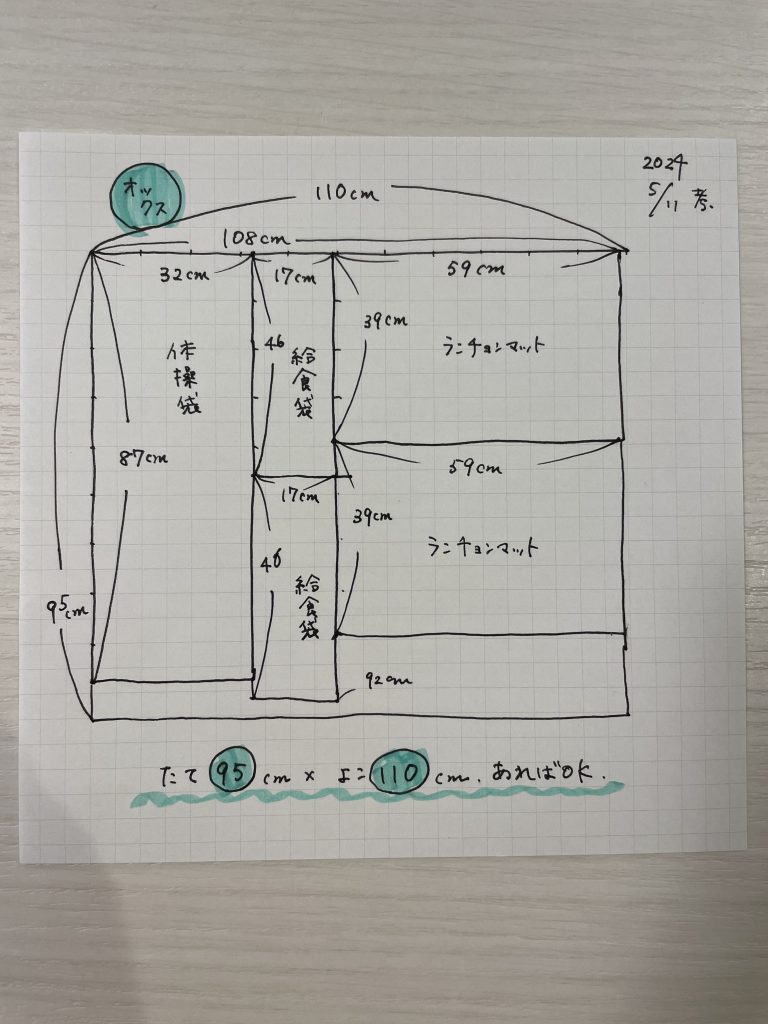 2024
5/11 考.
オックス
110cm
108cm
32cm
17cm
59cm
39cm
46
体操袋
給食袋
ランチョンマット
87cm
59cm
17cm
39cm
46
給食袋
ランチョンマット
95cm
92cm
たて 95 cm × よこ 110 cm. あればOK.